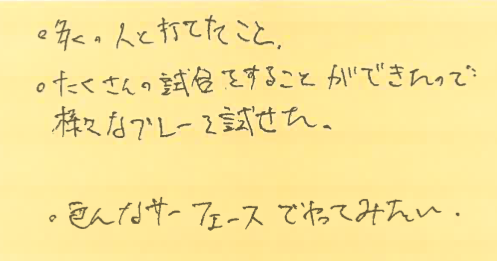 。多くの人と打てたこと.
。たくさんの試合をすることができたので
様々なプレーを試せた。
。色んなサーフェースでやってみたい.